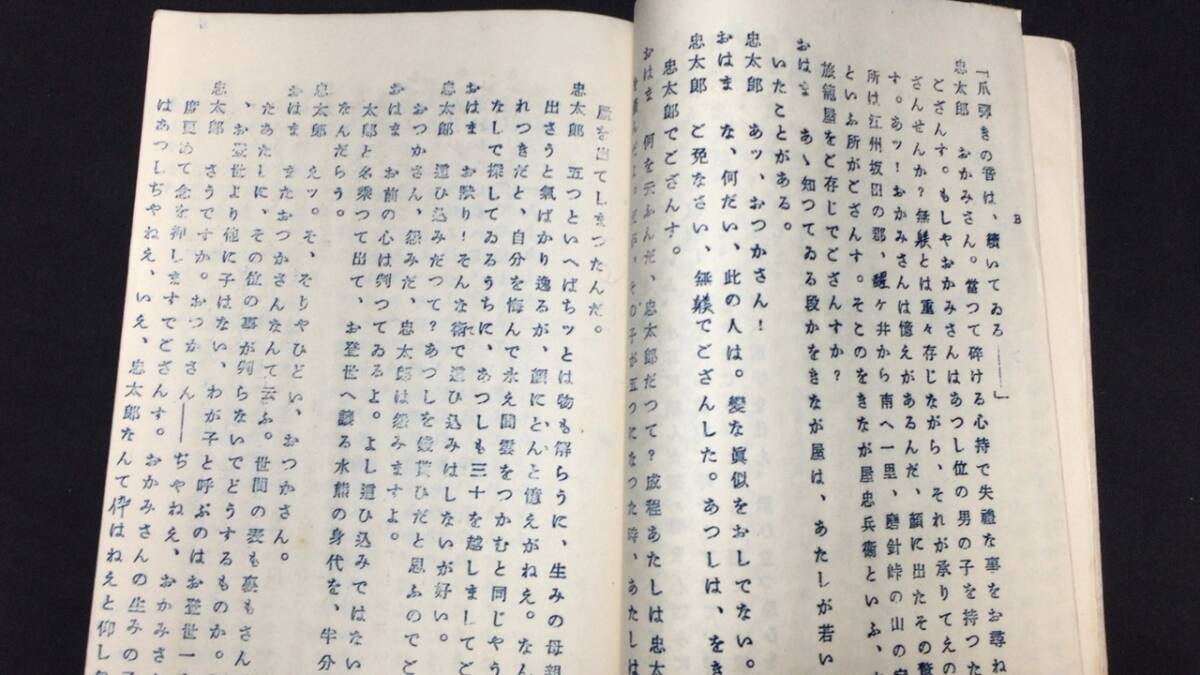 「爪弾きの音は、續いてゐる――」
B
忠太郎　おかみさん。當つて碎ける心持で失禮な事をお尋ね
ござんす。もしやおかみさんはあつし位の男の子を持つた
さんせんか？無躾とは重々存じながら、それが承りてえの
す。あッ！おかみさんは憶えがあるんだ、顏に出たその驚
所は江州坂田の郡、醒ヶ井から南へ一里、磨針峠の山の宿
といふ所がござんす。そこのをきなが屋忠兵衞といふ、
旅籠屋をご存じでござんすか？
おはま　あゝ知つてゐる段かをきなが屋は、あたしが若い
いたことがある。
忠太郎　あッ、おつかさん！
おはま　な、何だい、此の人は。變な眞似をおしでない。
忠太郎　ご免なさい、無躾でござんした。あつしは、をき
忠太郎でござんす。
おはま　何を云ふんだ、忠太郎だつて？成程あたしは忠太
子が五つになつた時、あたしは
屋を出てしまつたんだ。
忠太郎　五つといへばちッとは物も解らうに、生みの母親
出さうと氣ばかり逸るが、顏にとんと憶えがねえ。なん
れつきだと、自分を悔んで永え間雲をつかむと同じやう
なしで探してゐるうちに、あつしも三十を越しましてご
おはま　お默り！そんな術で這ひ込みはしないが好い。
忠太郎　這ひ込みだつて？あつしを錢貰ひだと思ふのでご
おつかさん、怨みだ、忠太郎は怨みますよ。
おはま　お前の心は判つてゐるよ。よし這ひ込みではない
太郎と名乘つて出て、お登世へ讓る水熊の身代を、半分
なんだらう。
忠太郎　えッ。そ、そりやひどい、おつかさん。
おはま　またおつかさんなんて云ふ。世間の表も裏もさん
たあたしに、その位の事が判らないでどうするものか。
、お登世より他に子はない、わが子と呼ぶのはお登世一
忠太郎　さうですか。おつかさん――ぢやねえ、おかみさ
度更めて念を押しますでござんす。おかみさんの生みの子
はあつしぢやねえ、いえ、忠太郎なんて枠はねえと仰し